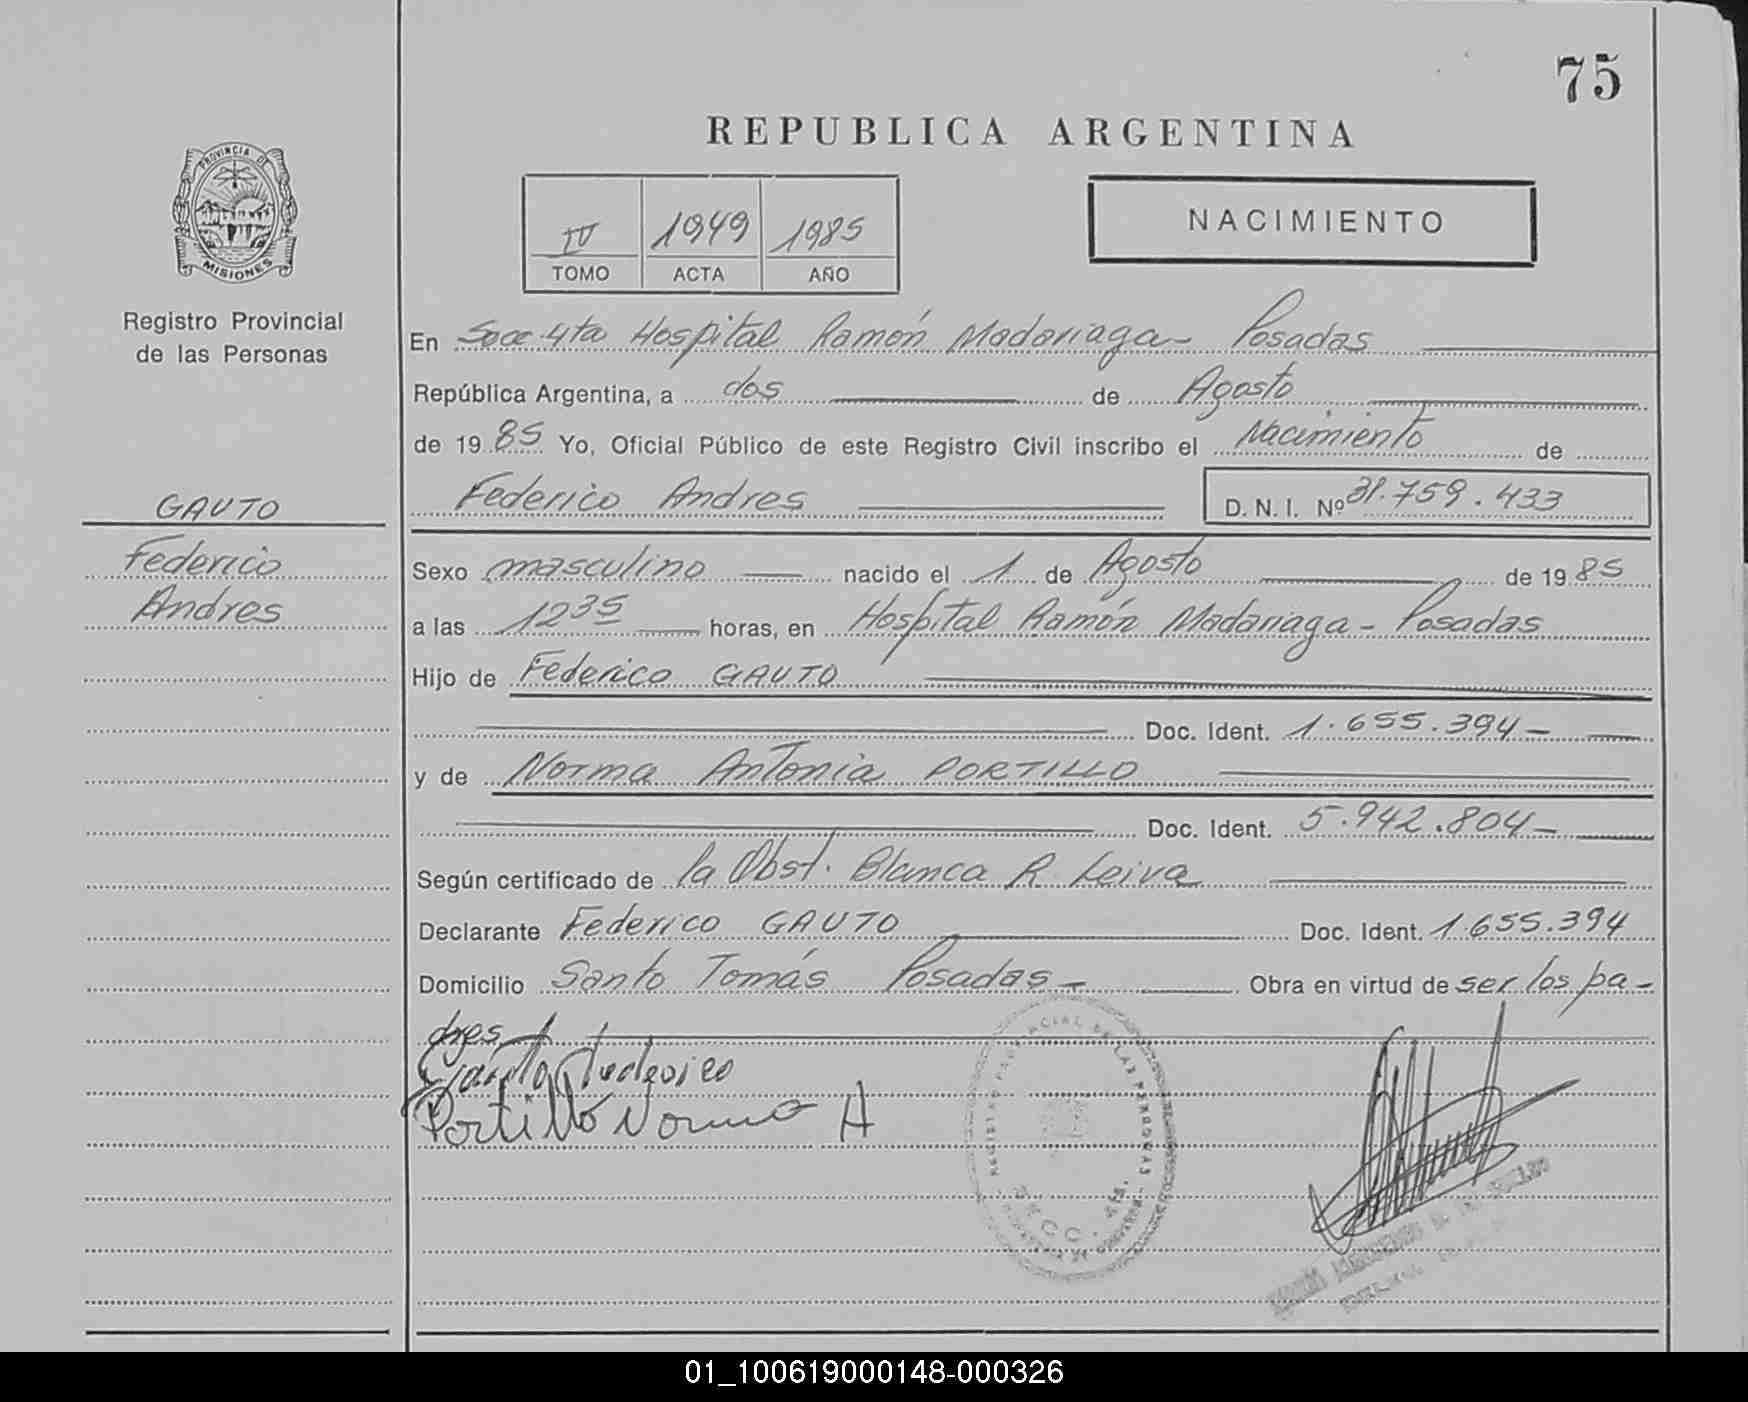 75
REPUBLICA ARGENTINA
PROVINCIA DE
MISIONES
Registro Provincial
de las Personas
IV 1949 1985
TOMO ACTA AÑO
NACIMIENTO
En Secc 4ta Hospital Ramón Madariaga Posadas
República Argentina, a dos de Agosto
de 1985 Yo, Oficial Público de este Registro Civil inscribo el Nacimiento de
Federico Andres D.N.I. Nº 31.759.433
GAUTO
Federico
Andres
Sexo masculino nacido el 1 de Agosto de 1985
a las 12 35 horas, en Hospital Ramón Madariaga - Posadas
Hijo de Federico GAUTO
Doc. Ident. 1.655.394-
y de Norma Antonia PORTILLO
Doc. Ident. 5.942.804-
Según certificado de la Obst. Blanca R. Leiva
Declarante Federico GAUTO Doc. Ident. 1.655.394
Domicilio Santo Tomás Posadas - Obra en virtud de ser los pa-
dres
Gauto Federico
Portillo Norma A
01_100619000148-000326